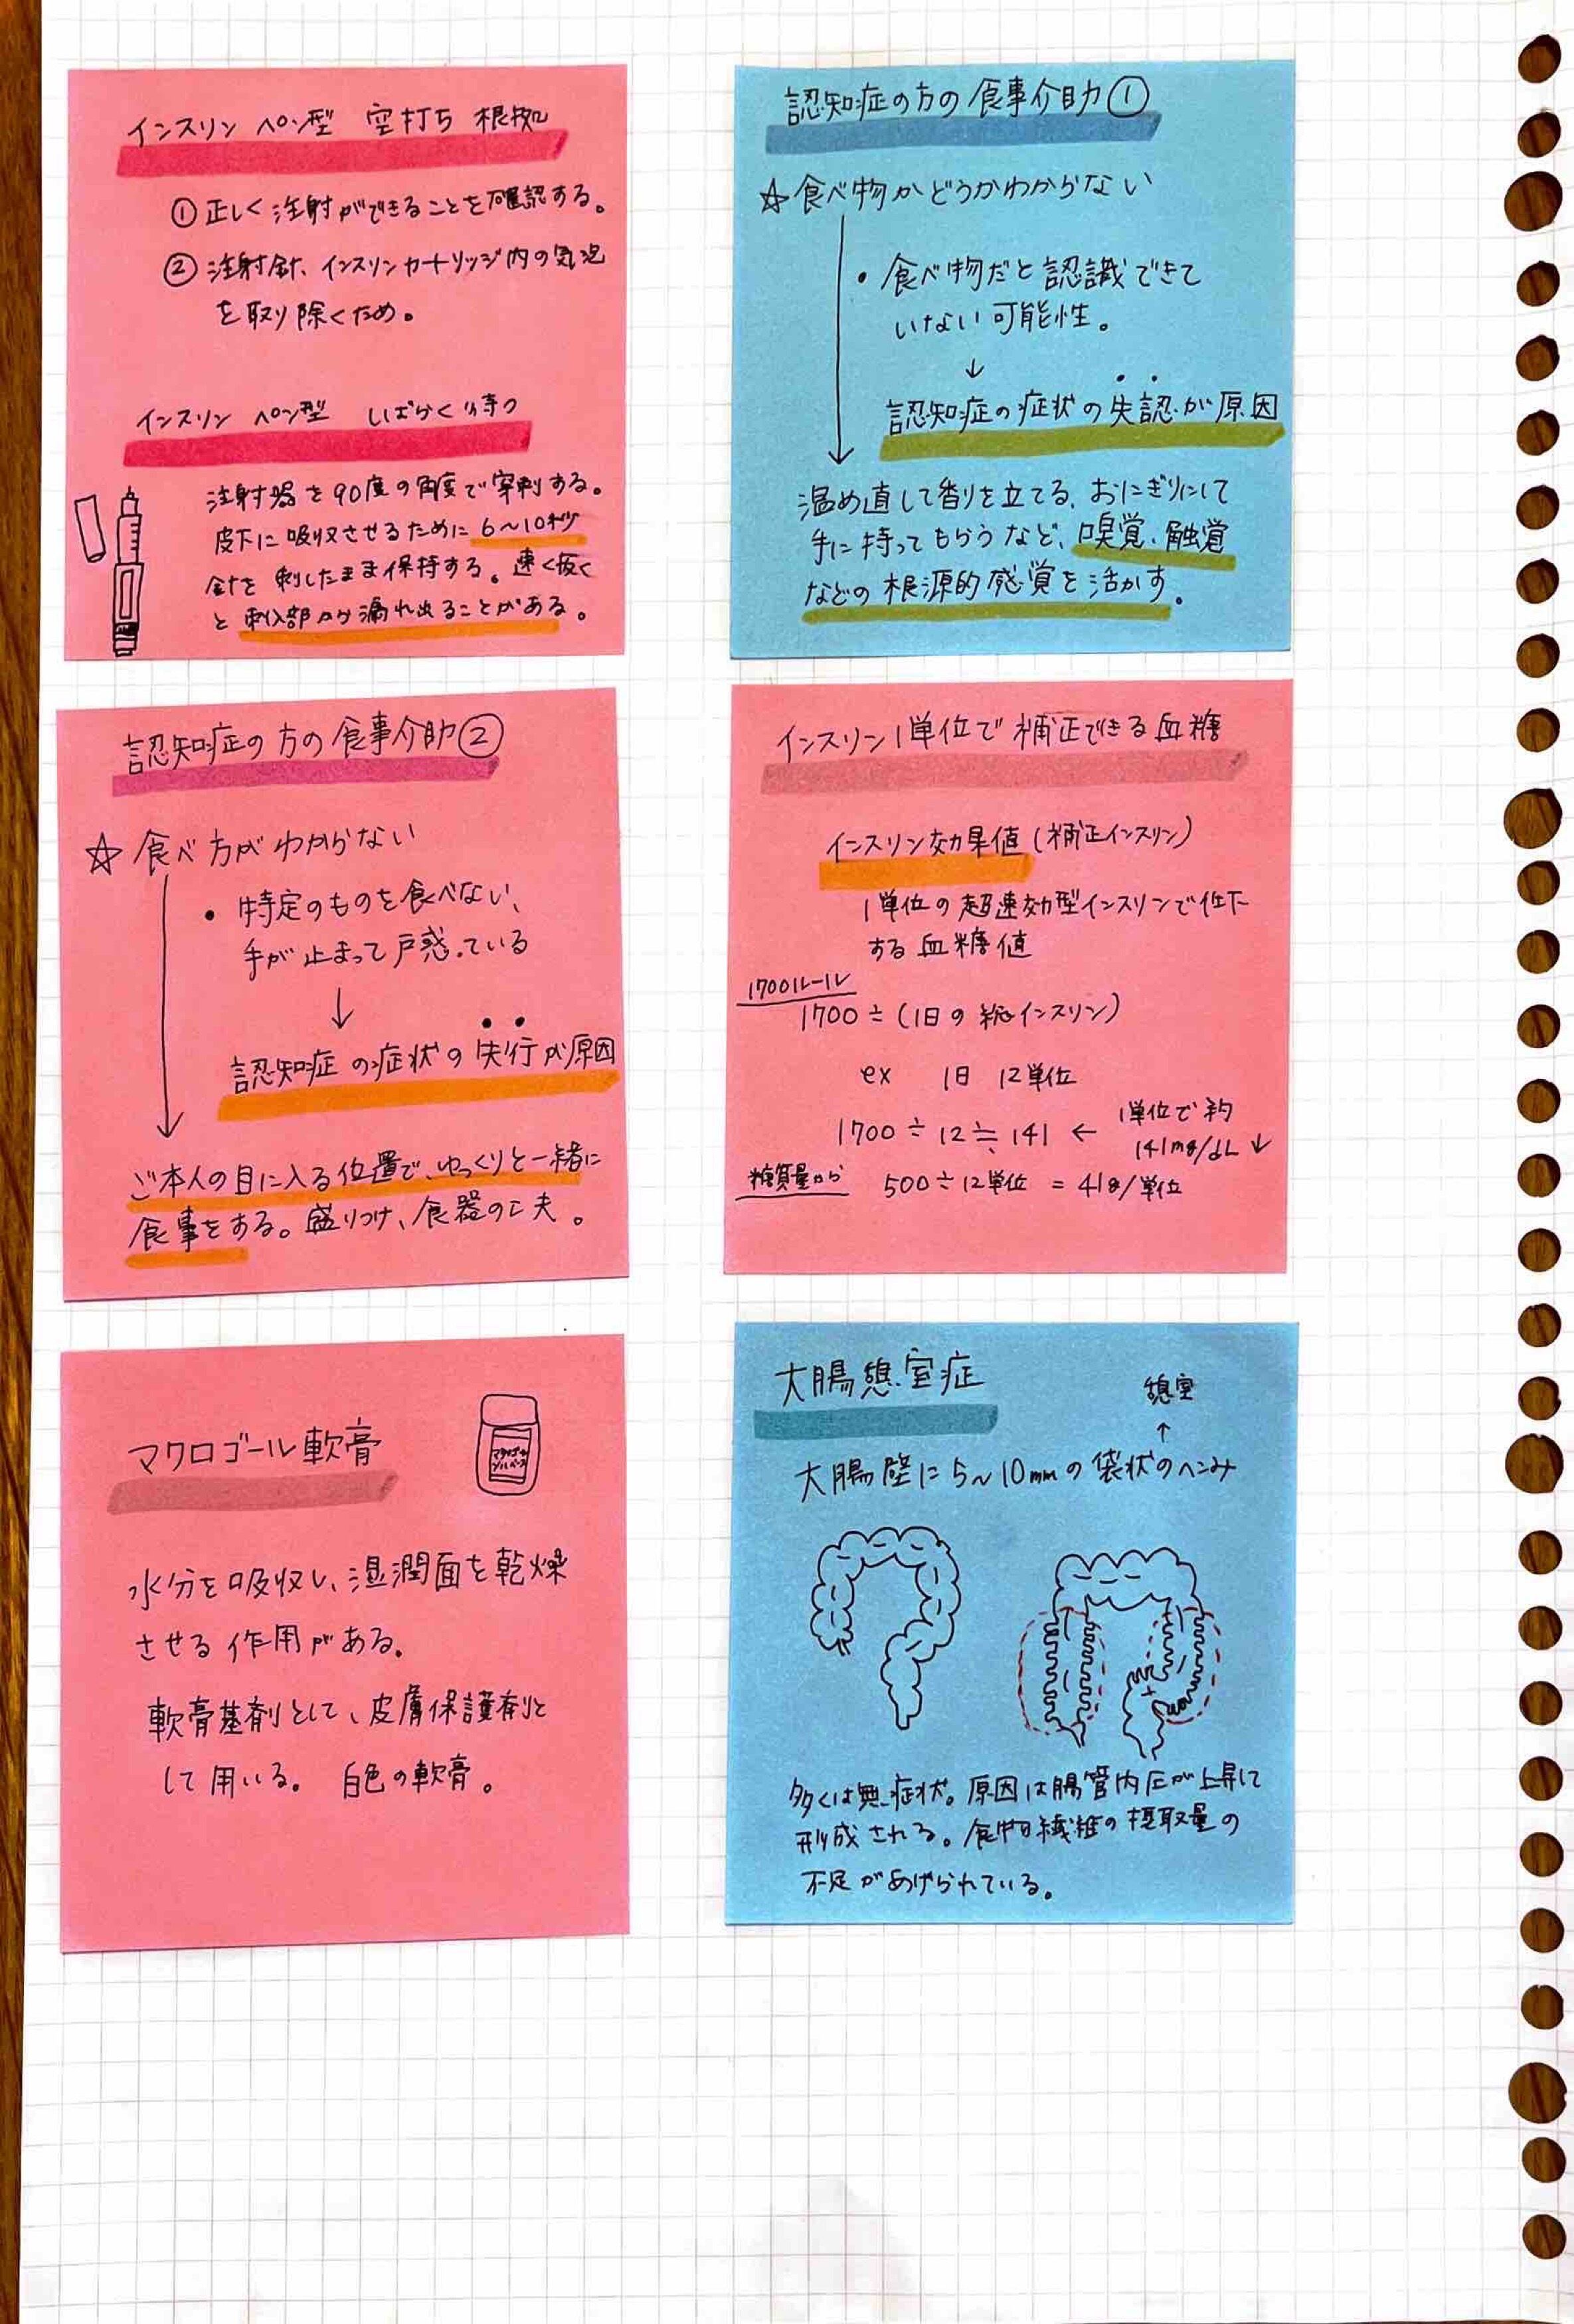 インスリン ペン型 空打ち 根拠
①正しく注射ができることを確認する。
②注射針、インスリンカートリッジ内の気泡
を取り除くため。
インスリン ペン型 しばらく待つ
注射器を90度の角度で穿刺する。
皮下に吸収させるために6〜10秒
針を刺したまま保持する。速く抜く
と刺入部から漏れ出ることがある。
認知症の方の食事介助①
☆食べ物かどうかわからない
・食べ物だと認識できて
いない可能性。
↓
認知症の症状の失認が原因
温め直して香りを立てる、おにぎりにして
手に持ってもらうなど、嗅覚、触覚
などの根源的感覚を活かす。
認知症の方の食事介助②
☆食べ方がわからない
・特定のものを食べない、
手が止まって戸惑っている
↓
認知症の症状の失行が原因
ご本人の目に入る位置で、ゆっくりと一緒に
食事をする。盛りつけ、食器の工夫。
インスリン1単位で補正できる血糖
インスリン効果値(補正インスリン)
1単位の超速効型インスリンで低下
する血糖値
1700ルール
1700÷(1日の総インスリン)
ex 1日 12単位
1700÷12≒141 ← 1単位で約
141mg/dL↓
糖質量から 500÷12単位=41g/単位
マクロゴール軟膏
マクロゴール
ソルベース
水分を吸収し、湿潤面を乾燥
させる作用がある。
軟膏基剤として、皮膚保護剤と
して用いる。 白色の軟膏。
大腸憩室症
憩室
↑
大腸壁に5〜10mmの袋状のへこみ
多くは無症状。原因は腸管内圧が上昇して
形成される。食物繊維の摂取量の
不足があげられている。